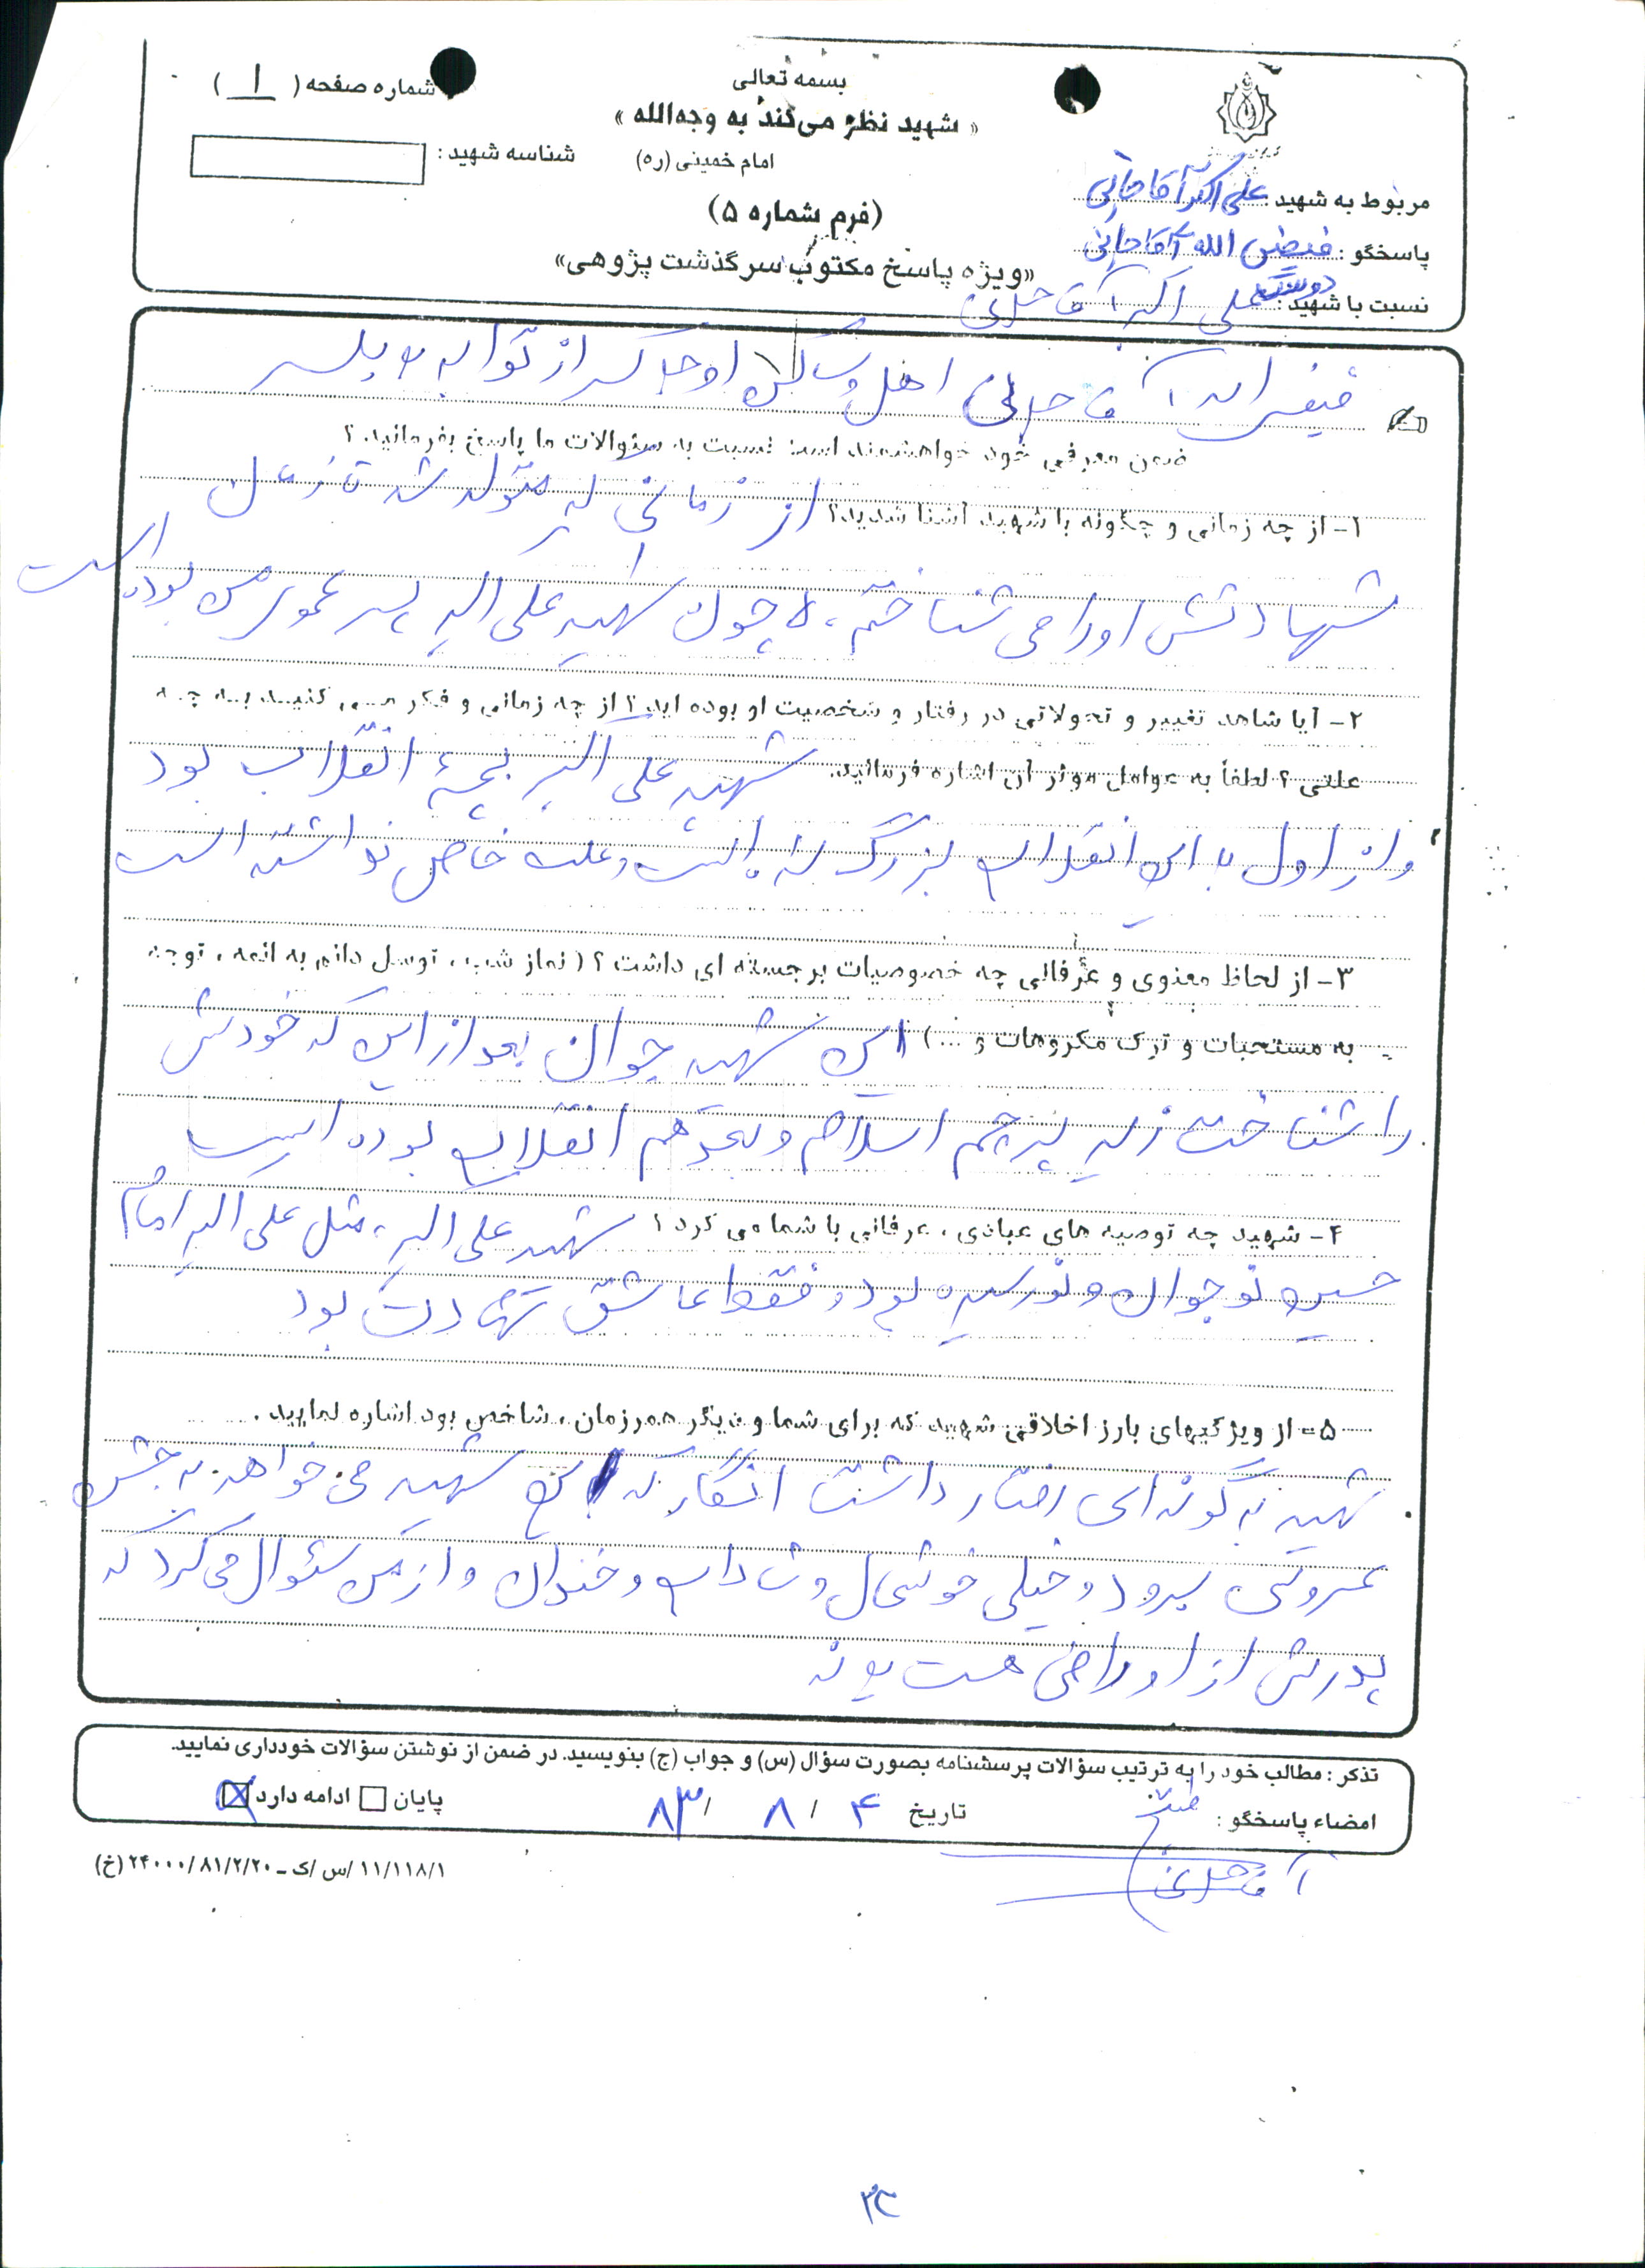 بسمه تعالی
« شهید نظر می‌کند به وجه‌الله »
امام خمینی (ره)
شماره صفحه ( ۱ )
شناسه شهید :
(فرم شماره ۵)
«ویژه پاسخ مکتوب سرگذشت پژوهی»
مربوط به شهید : علی اکبر آقاجانی
پاسخگو : فیض الله آقاجانی
نسبت با شهید : دوست علی اکبر آقاجانی
فیض الله آقاجانی اهل و ساکن از توابع بابلسر
ضمن معرفی خود خواهشمند است نسبت به سئوالات ما پاسخ بفرمائید. ؟
۱- از چه زمانی و چگونه با شهید آشنا شدید؟ از زمانی که متولد شد تا زمان
شهادتش او را می شناختم، چون شهید علی اکبر پسر عموی من بوده است
۲- آیا شاهد تغییر و تحولاتی در رفتار و شخصیت او بوده اید؟ از چه زمانی و فکر می کنید به چه
علتی ؟ لطفاً به عوامل موثر آن اشاره فرمائید. شهید علی اکبر بچهٔ انقلاب بود
و از اول با این انقلاب بزرگ شد و علت خاص نداشته است
۳- از لحاظ معنوی و عرفانی چه خصوصیات برجسته ای داشت ؟ ( نماز شب ، توسل دائم به ائمه ، توجه
به مستحبات و ترک مکروهات و ... ) این شهید جوان بعد از این که خودش
را شناخت زیر پرچم اسلام و بعد هم انقلاب بوده است
۴- شهید چه توصیه های عبادی ، عرفانی با شما می کرد ؟ شهید علی اکبر، مثل علی اکبر امام
حسین نوجوان و نورسیده بود و فقط عاشق شهادت بود
۵- از ویژگیهای بارز اخلاقی شهید که برای شما و دیگر همرزمان ، شاخص بود اشاره نمایید .
شهید به گونه ای رفتار داشت انگار که این شهید می خواهد به جشن
عروسی برود و خیلی خوشحال و شاداب و خندان و از من سئوال می کرد که
پدرش از او راضی هست یا نه
تذکر : مطالب خود را به ترتیب سؤالات پرسشنامه بصورت سؤال (س) و جواب (ج) بنویسید. در ضمن از نوشتن سؤالات خودداری نمایید.
امضاء پاسخگو : فیض
تاریخ ۴ / ۸ / ۸۳
پایان ☐ ادامه دارد ☒
آقاجانی
۱۱/۱۱۸/۱ /س /ک ـ ۲۴۰۰۰/۸۱/۲/۲۰ (خ)
۳۲